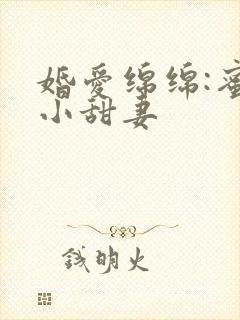 婚愛绵绵:蜜
小甜妻
钱明火